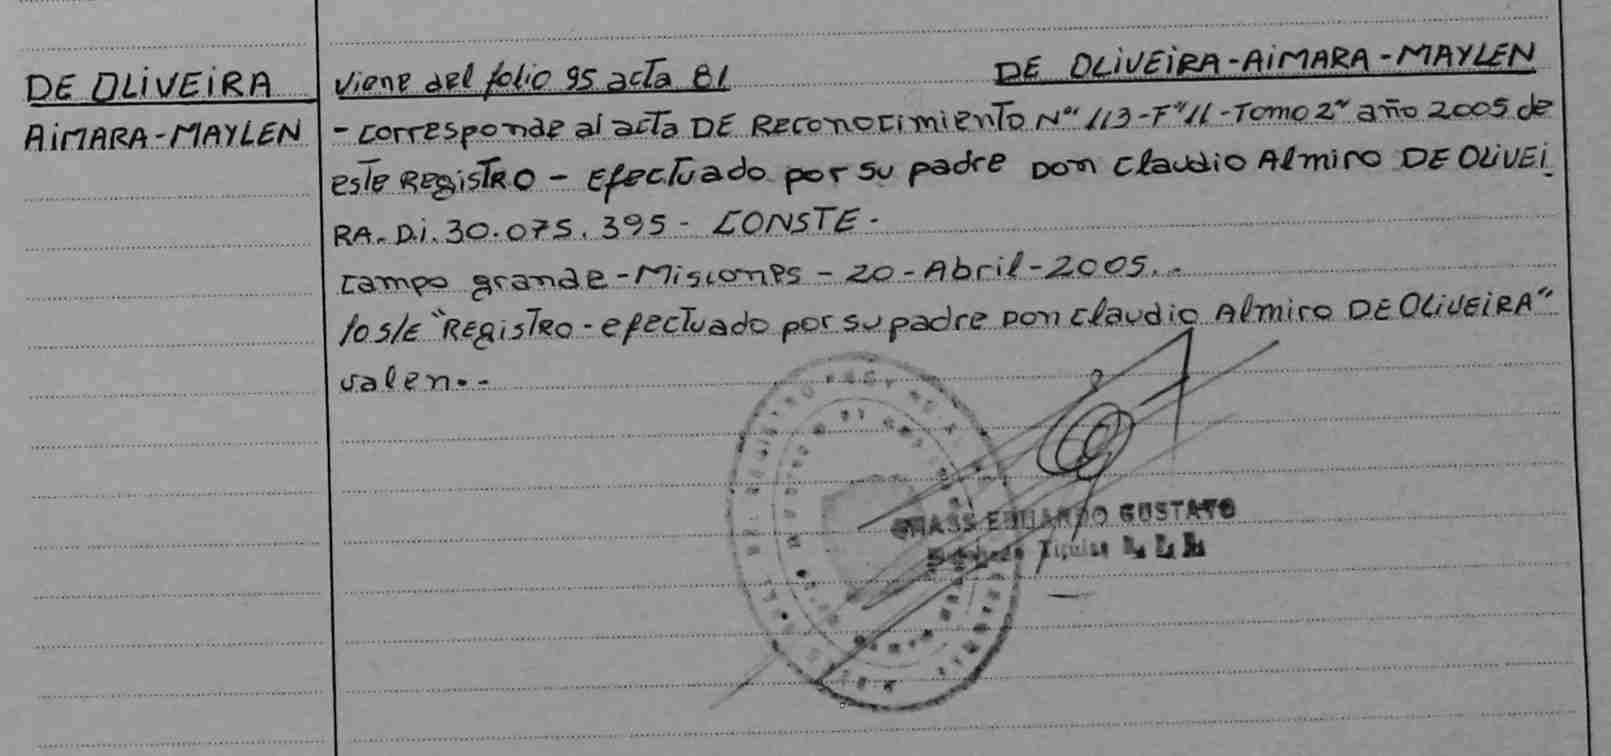 DE OLIVEIRA
AIMARA-MAYLEN
viene del folio 95 acta 81 DE OLIVEIRA-AIMARA-MAYLEN
- corresponde al acta DE Reconocimiento N" 113-F"11-Tomo 2" año 2005 de
este REgisTRO - Efectuado por su padre Don Claudio Almiro DE OLIVEI
RA. D.i. 30.075.395 - CONSTE -
campo grande - Misiones - 20 - Abril - 2005. -
lo s/E "REgisTRO - efectuado por su padre Don Claudio Almiro DE OLIVEIRA"
valen. -
EDUARDO GUSTAVO